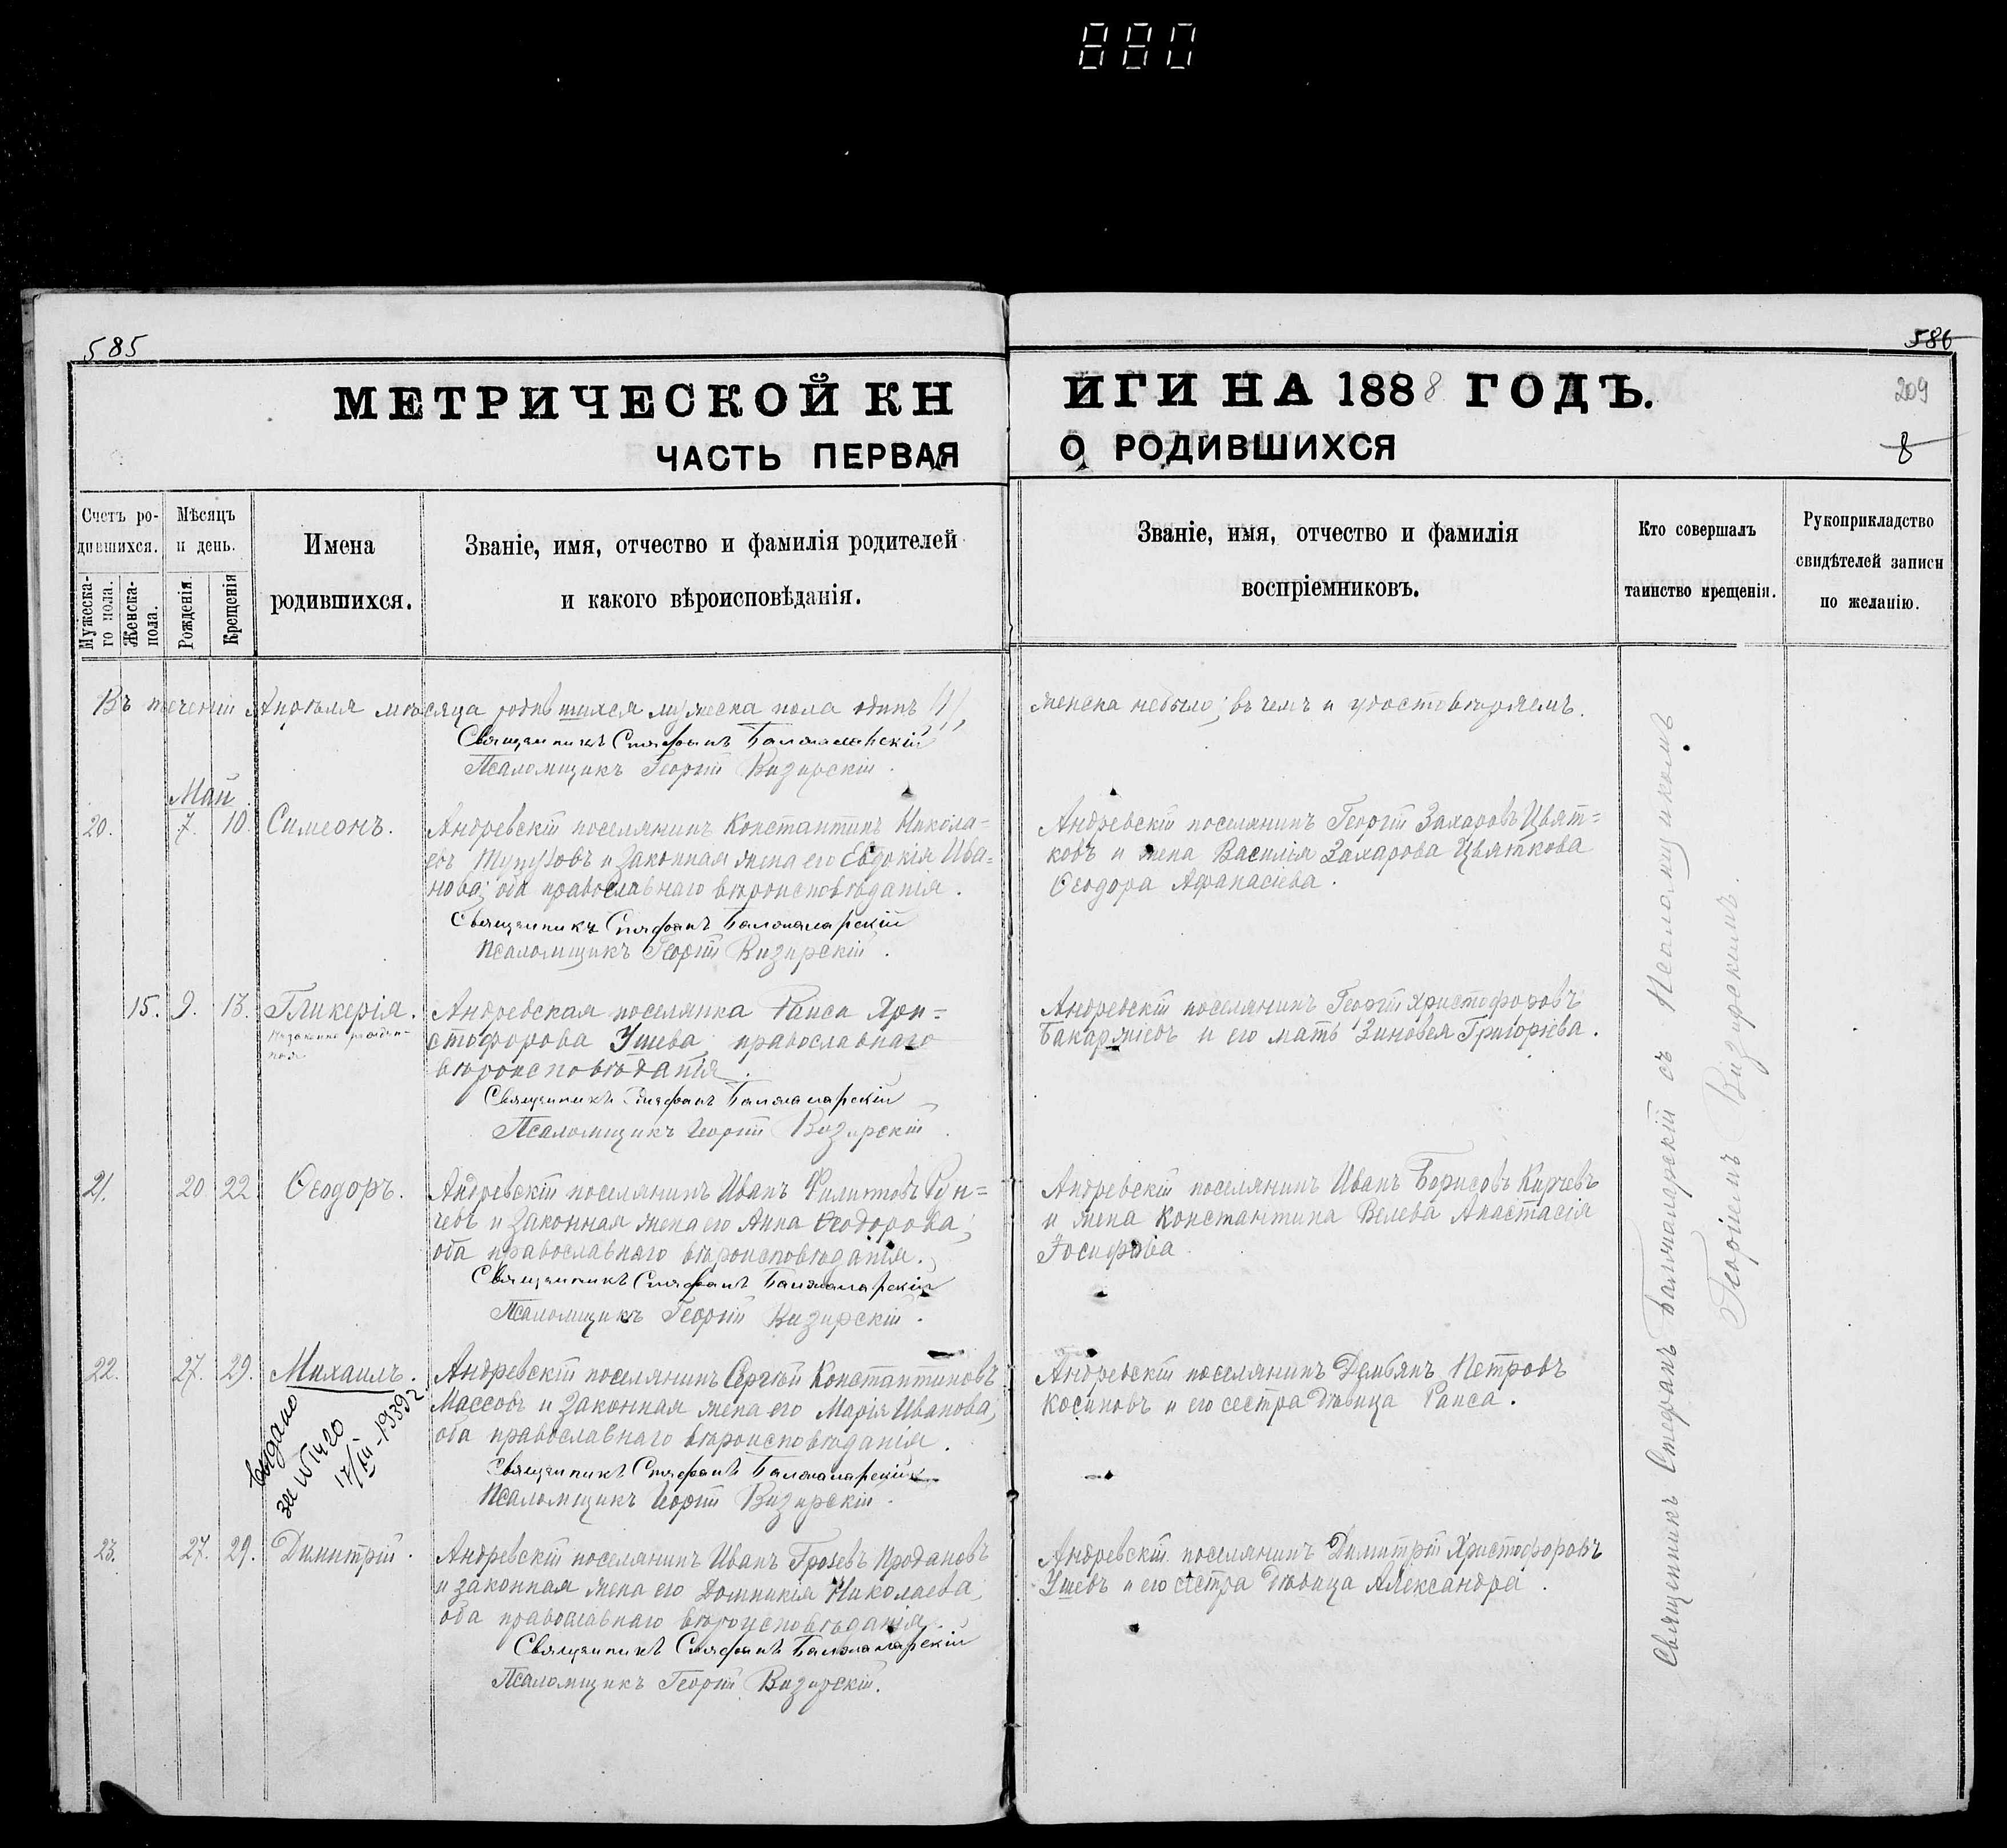 880
585
586
МЕТРИЧЕСКОЙ КНИГИ НА 1888 ГОДЪ.
209
8
ЧАСТЬ ПЕРВАЯ О РОДИВШИХСЯ
Счетъ родившихся.
Мужеска-
го пола.
Женска-
пола.
Мѣсяцъ
и день.
Рожденія
Крещенія
Имена
родившихся.
Званіе, имя, отчество и фамилія родителей
и какого вѣроисповѣданія.
Званіе, имя, отчество и фамилія
воспріемниковъ.
Кто совершалъ
таинство крещенія.
Рукоприкладство
свидѣтелей записи
по желанію.
Въ теченіи Апрѣля мѣсяца родившихся мужеска пола одинъ /1/, женска небыло; въ чемъ и удостовѣряемъ.
Священникъ Стефанъ Балжаларскій
Псаломщикъ Георгій Визирскій.
Май
20. 7. 10. Симеонъ.
Андревскій поселянинъ Константинъ Никола=
евъ и законная жена его Евдокія Ива=
нова; оба православнаго вѣроисповѣданія.
Священникъ Стефанъ Балжаларскій
Псаломщикъ Георгій Визирскій.
Андревскій поселянинъ Георгій Захаровъ Цвят=
ковъ и жена Василія Захарова Цвяткова
Ѳеодора Афанасіева.
15. 9. 13. Гликерія.
Незаконно рожден-
ная
Андревская поселянка Раиса Хри=
стофорова Ушева, православнаго
вѣроисповѣданія.
Священникъ Стефанъ Балжаларскій
Псаломщикъ Георгій Визирскій.
Андревскій поселянинъ Георгій Христофоровъ
Бакаржіевъ и его мать Зиновея Григоріева.
21. 20. 22. Ѳеодоръ.
Андревскій поселянинъ Иванъ Филиповъ
и законная жена его Анна Ѳеодорова;
оба православнаго вѣроисповѣданія.
Священникъ Стефанъ Балжаларскій
Псаломщикъ Георгій Визирскій.
Андревскій поселянинъ Иванъ Борисовъ Кирчевъ
и жена Константина Велева Анастасія
Іосифова
22. 27. 29. Михаилъ.
выдано
за №1420
17/III-1939г
Андревскій поселянинъ Сергѣй Константиновъ
Массовъ и законная жена его Марія Иванова,
оба православнаго вѣроисповѣданія.
Священникъ Стефанъ Балжаларскій
Псаломщикъ Георгій Визирскій.
Андревскій поселянинъ Демьянъ Петровъ
Косиновъ и его сестра дѣвица Раиса.
23. 27. 29. Димитрій.
Андревскій поселянинъ Иванъ Грозевъ Продановъ
и законная жена его Домникія Николаева,
оба православнаго вѣроисповѣданія.
Священникъ Стефанъ Балжаларскій
Псаломщикъ Георгій Визирскій.
Андревскій поселянинъ Димитрій Христофоровъ
Ушевъ и его сестра дѣвица Александра.
Священникъ Стефанъ Балжаларскій съ Псаломщикомъ
Георгіемъ Визирскимъ.